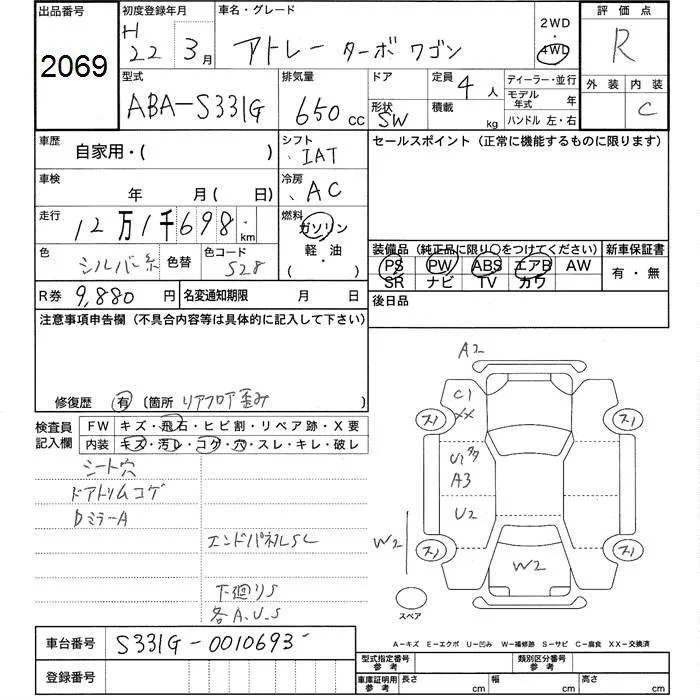 出品番号 初度登録年月 車名・グレード 2WD・4WD 評価点
2069 H 22 3月 アトレー ターボ ワゴン R
型式 排気量 ドア 定員 4人 ディーラー・並行 外装 内装
ABA-S331G 650cc 形状 SW 積載 kg モデル年式 年 C
ハンドル 左・右
車歴 自家用・( ) シフト IAT セールスポイント (正常に機能するものに限ります)
車検 年 月( 日) 冷房 AC
走行 12万1千698km 燃料 ガソリン・軽油 ( )
色 シルバー系 色替 色コード S28
装備品 (純正品に限り○をつけてください) 新車保証書
PS PW ABS エアB AW 有・無
SR ナビ TV カワ
R券 9,880円 名変通知期限 月 日 後日品
注意事項申告欄 (不具合内容等は具体的に記入して下さい)
修復歴 有 〔箇所 リアフロア歪み
検査員記入欄 FW キズ・飛石・ヒビ割・リペア跡・X要
内装 キズ・汚レ・コゲ・穴・スレ・キレ・破レ
シート穴
ドアトリムコゲ
Dミラー A
エンドパネルSC
下廻りS
各A.U.S
A2
C1
XX
スノ スノ
A3
U2
W2 W2
スノ スノ
スペア
A-キズ E-エクボ U-凹み W-補修跡 S-サビ C-腐食 XX-交換済
車台番号 S331G-0010693
登録番号
型式指定番号 参考 類別区分番号 参考
車庫証明用 参考 長さ cm 幅 cm 高さ cm